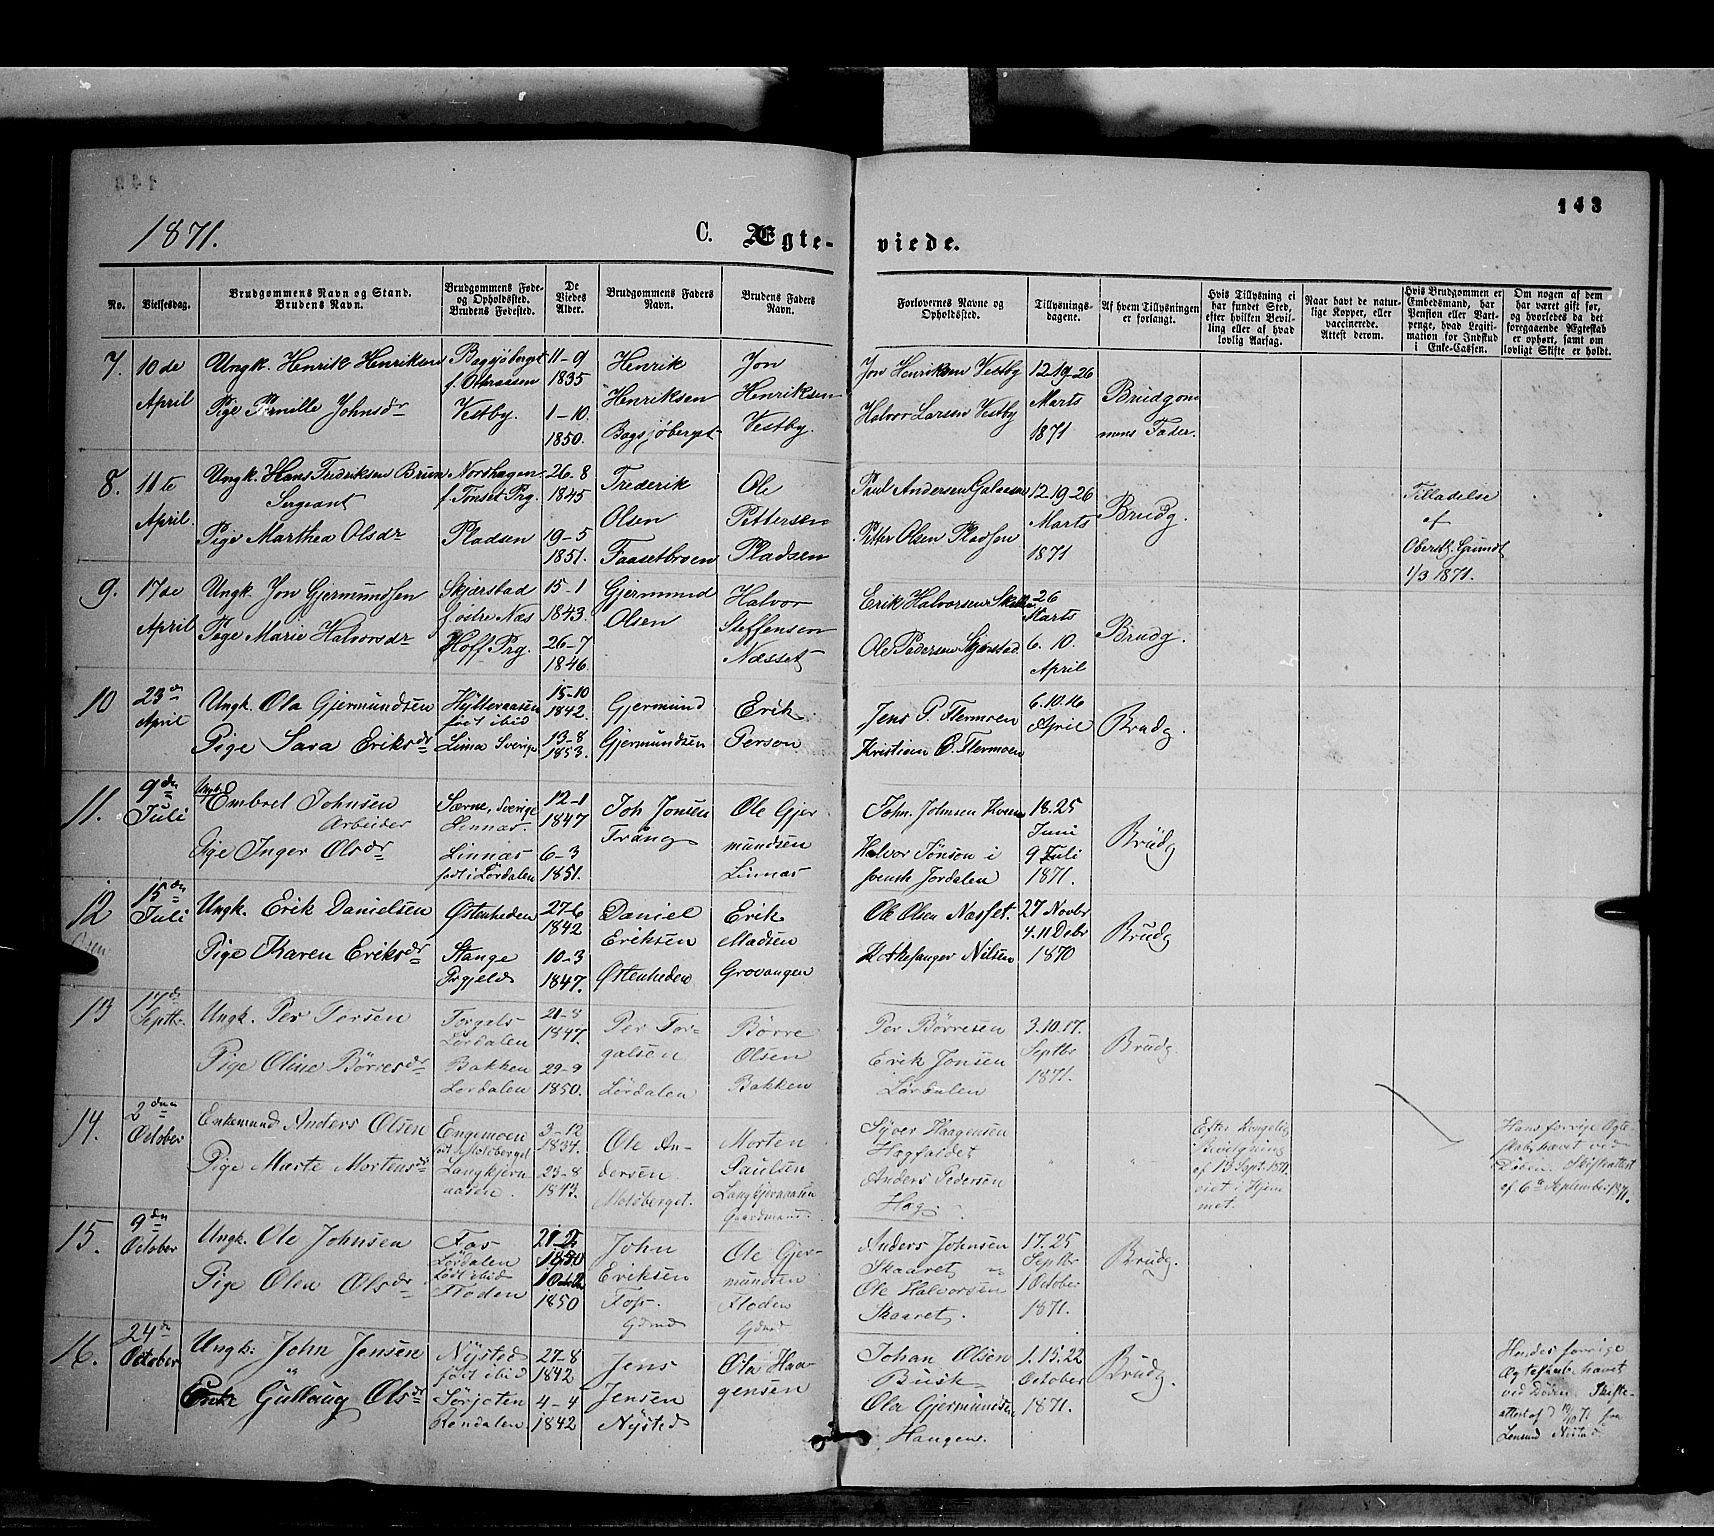 143
1871.
C. Ægte-
viede.
No.
Vielsesdag.
Brudgommens Navn og Stand.
Brudens Navn.
Brudgommens Føde-
og Opholdssted.
Brudens Fødested.
De
Viedes
Alder.
Brudgommens Faders
Navn.
Brudens Faders
Navn.
Forlovernes Navne og
Opholdssted.
Tillysnings-
dagene.
Af hvem Tillysningen
er forlangt.
Hvis Tillysning ei
har fundet Sted,
efter hvilken Bevil-
ling eller af hvad
lovlig Aarsag.
Naar havt de natur-
lige Kopper, eller
vaccinerede.
Attest derom.
Hvis Brudgommen er
Embedsmand, har
Pension eller Vart-
penge, hvad Legiti-
mation for Indskud
i Enke-Cassen.
Om nogen af dem
har været gift før,
og hvorledes da det
foregaaende Ægteskab
er ophørt, samt om
lovligt Skifte er holdt.
7.
10de
April
Ungk. Henrik Henriksen
Pige Pernille Johnsdr
Bagsjøberget
Vestby.
11-9
1835
1-10.
1850.
Henrik
Henriksen
Bagsjøberget
Jon
Henriksen
Vestby.
Jon Henriksen Vestby
Halvor Larsen Vestby
12 19-26
Marts
1871
Brudgom
mens Fader.
8.
11te
April.
Ungk. Hans Frederiksen Brun
Sergeant
Pige Marthea Olsdr
Norshagen
f. Tønset Prg.
Pladsen
26-8
1845
19-5
1851.
Frederik
Olsen
Faasetbroen
Ole
Pettersen
Pladsen
Paul Andersen Galaasen
Petter Olsen Pladsen
12.19-26
Marts
1871
Brudg.
Tilladelse
af
Oberstl. Grundt
1/3 1871.
9.
17de
April
Ungk. Jon Gjermundsen
Pige Marie Halvorsdr
Skjærsbad
f. østre Næs
Hoff Prg.
15-1
1843.
26-7
1846
Gjermund
Olsen
Halvor
Steffensen
Næsset
Erik Halvorsen
Ole Pedersen Skjærstad
26
Marts
6. 10.
April
Brudg.
10
23de
April
Ungk. Ola Gjermundsen
Pige Sara Eriksdr
Hytteraasen
født ibid
Lima Sverige
15-10
1842.
13-8
1853.
Gjermund
Gjermundsen
Erik
Person
Jens P. Flermoen
Kristian O. Flermoen
6.10.16
April
Brudg.
11.
9de
Juli
Ungk. Embret Johnsen
Arbeider
Pige Inger Olsdr
Særne, Sverige
Linnæs.
Linnæs
født i Lørdalen
12-1
1847
6-3
1851.
Joh Jonsen
Trång
Ole Gjer
mundsen
Linnæs
John Johnsen
Halvor Jönson i
svensk Jordalen
18.25
Juni
9 Juli
1871.
Brudg
12
15de
Juli
Ungk. Erik Danielsen
Pige Karen Eriksdr
Østenheden
Stange
Prgjeld
27-6
1842
10-3
1847.
Daniel
Eriksen
Østenheden
Erik
Madsen
Grovangen
Ole Olsen Næsset.
Kirkesanger Nilsen
27 Novbr
4.11 Debr
1870
Brudg
13
17de
Septbr.
Ungk. Per Persen
Pige Oline Børresdr
Torgals
Lørdalen
Bakken
Lørdalen
21-8
1847.
29-9
1850.
Per Tor-
galsen
Lørdalen
Børre
Olsen
Bakken
Per Børresen
Erik Jonsen
Lørdalen
3.10.17.
Septbr
1871.
Brudg.
14.
2den
October
Enkemand Anders Olsen
Pige Marte Mortensdr
Engemoen
født i Molsberget
Langkjern
aasen.
3-12
1834.
23-8
1843.
Ole An-
dersen
Molsberget.
Morten
Paulsen
Langkjernaasen
Gaardmand.
Syver Haagensen
Hagfaldet
Anders Pedersen
Hag
"
"
Efter kongelig
Bevilgning
af 13 Sept. 1871
viet i Hjem
met.
Hans forrige Ægte
skab hævet ved
Døden. Skifteattest
af 6te September 1871.
15.
9de
October
Ungk. Ole Johnsen
Pige Olea Olsdr
Fos
Lørdalen
Født ibid
Floden
1850
1850
John
Eriksen
Foss.
Gdmd
Ole Gjer-
mundsen
Floden
Gdmd
Anders Johnsen
Skaaret
Ole Halvorsen
Skaaret.
17.25
Septbr
1 October
1871.
Brudg.
16.
24de
October
Ungk. John Jensen
Enke Gullaug Olsdr
Nysted
født ibid
Rendalen
27-8
1842
4-4
1842
Jens
Jensen
Nysted
Ola Haa-
gensen
Johan Olsen
Busk
Ola Gjermundsen
Haugen.
1.15.22
October
1871.
Brudg.
Hendes forrige
Ægteskab hævet
ved Døden Skifte-
attest af fra
Lensmd Nysted